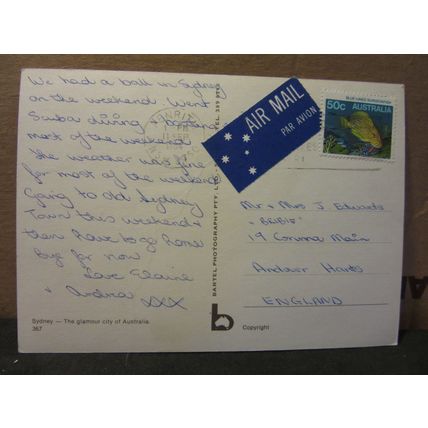 We had a ball in Sydney
on the weekend. Went
Scuba diving +
most of the weekend
the weather was fine
for most of the weekend
Going to old Sydney
Town this weekend +
then Home
Bye for now
Love Elaine
+ Andrea XXX
Sydney — The glamour city of Australia.
367
BARTEL PHOTOGRAPHY PTY. LTD.
TEL. 399
b
Copyright
AIR MAIL
PAR AVION
50c AUSTRALIA
Mr + Mrs J Edwards
19
Andover Hants
ENGLAND